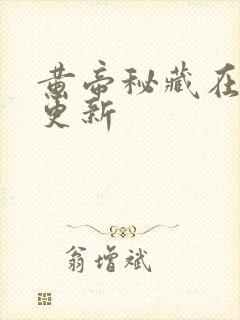 黄帝秘藏在
更新
翁增斌